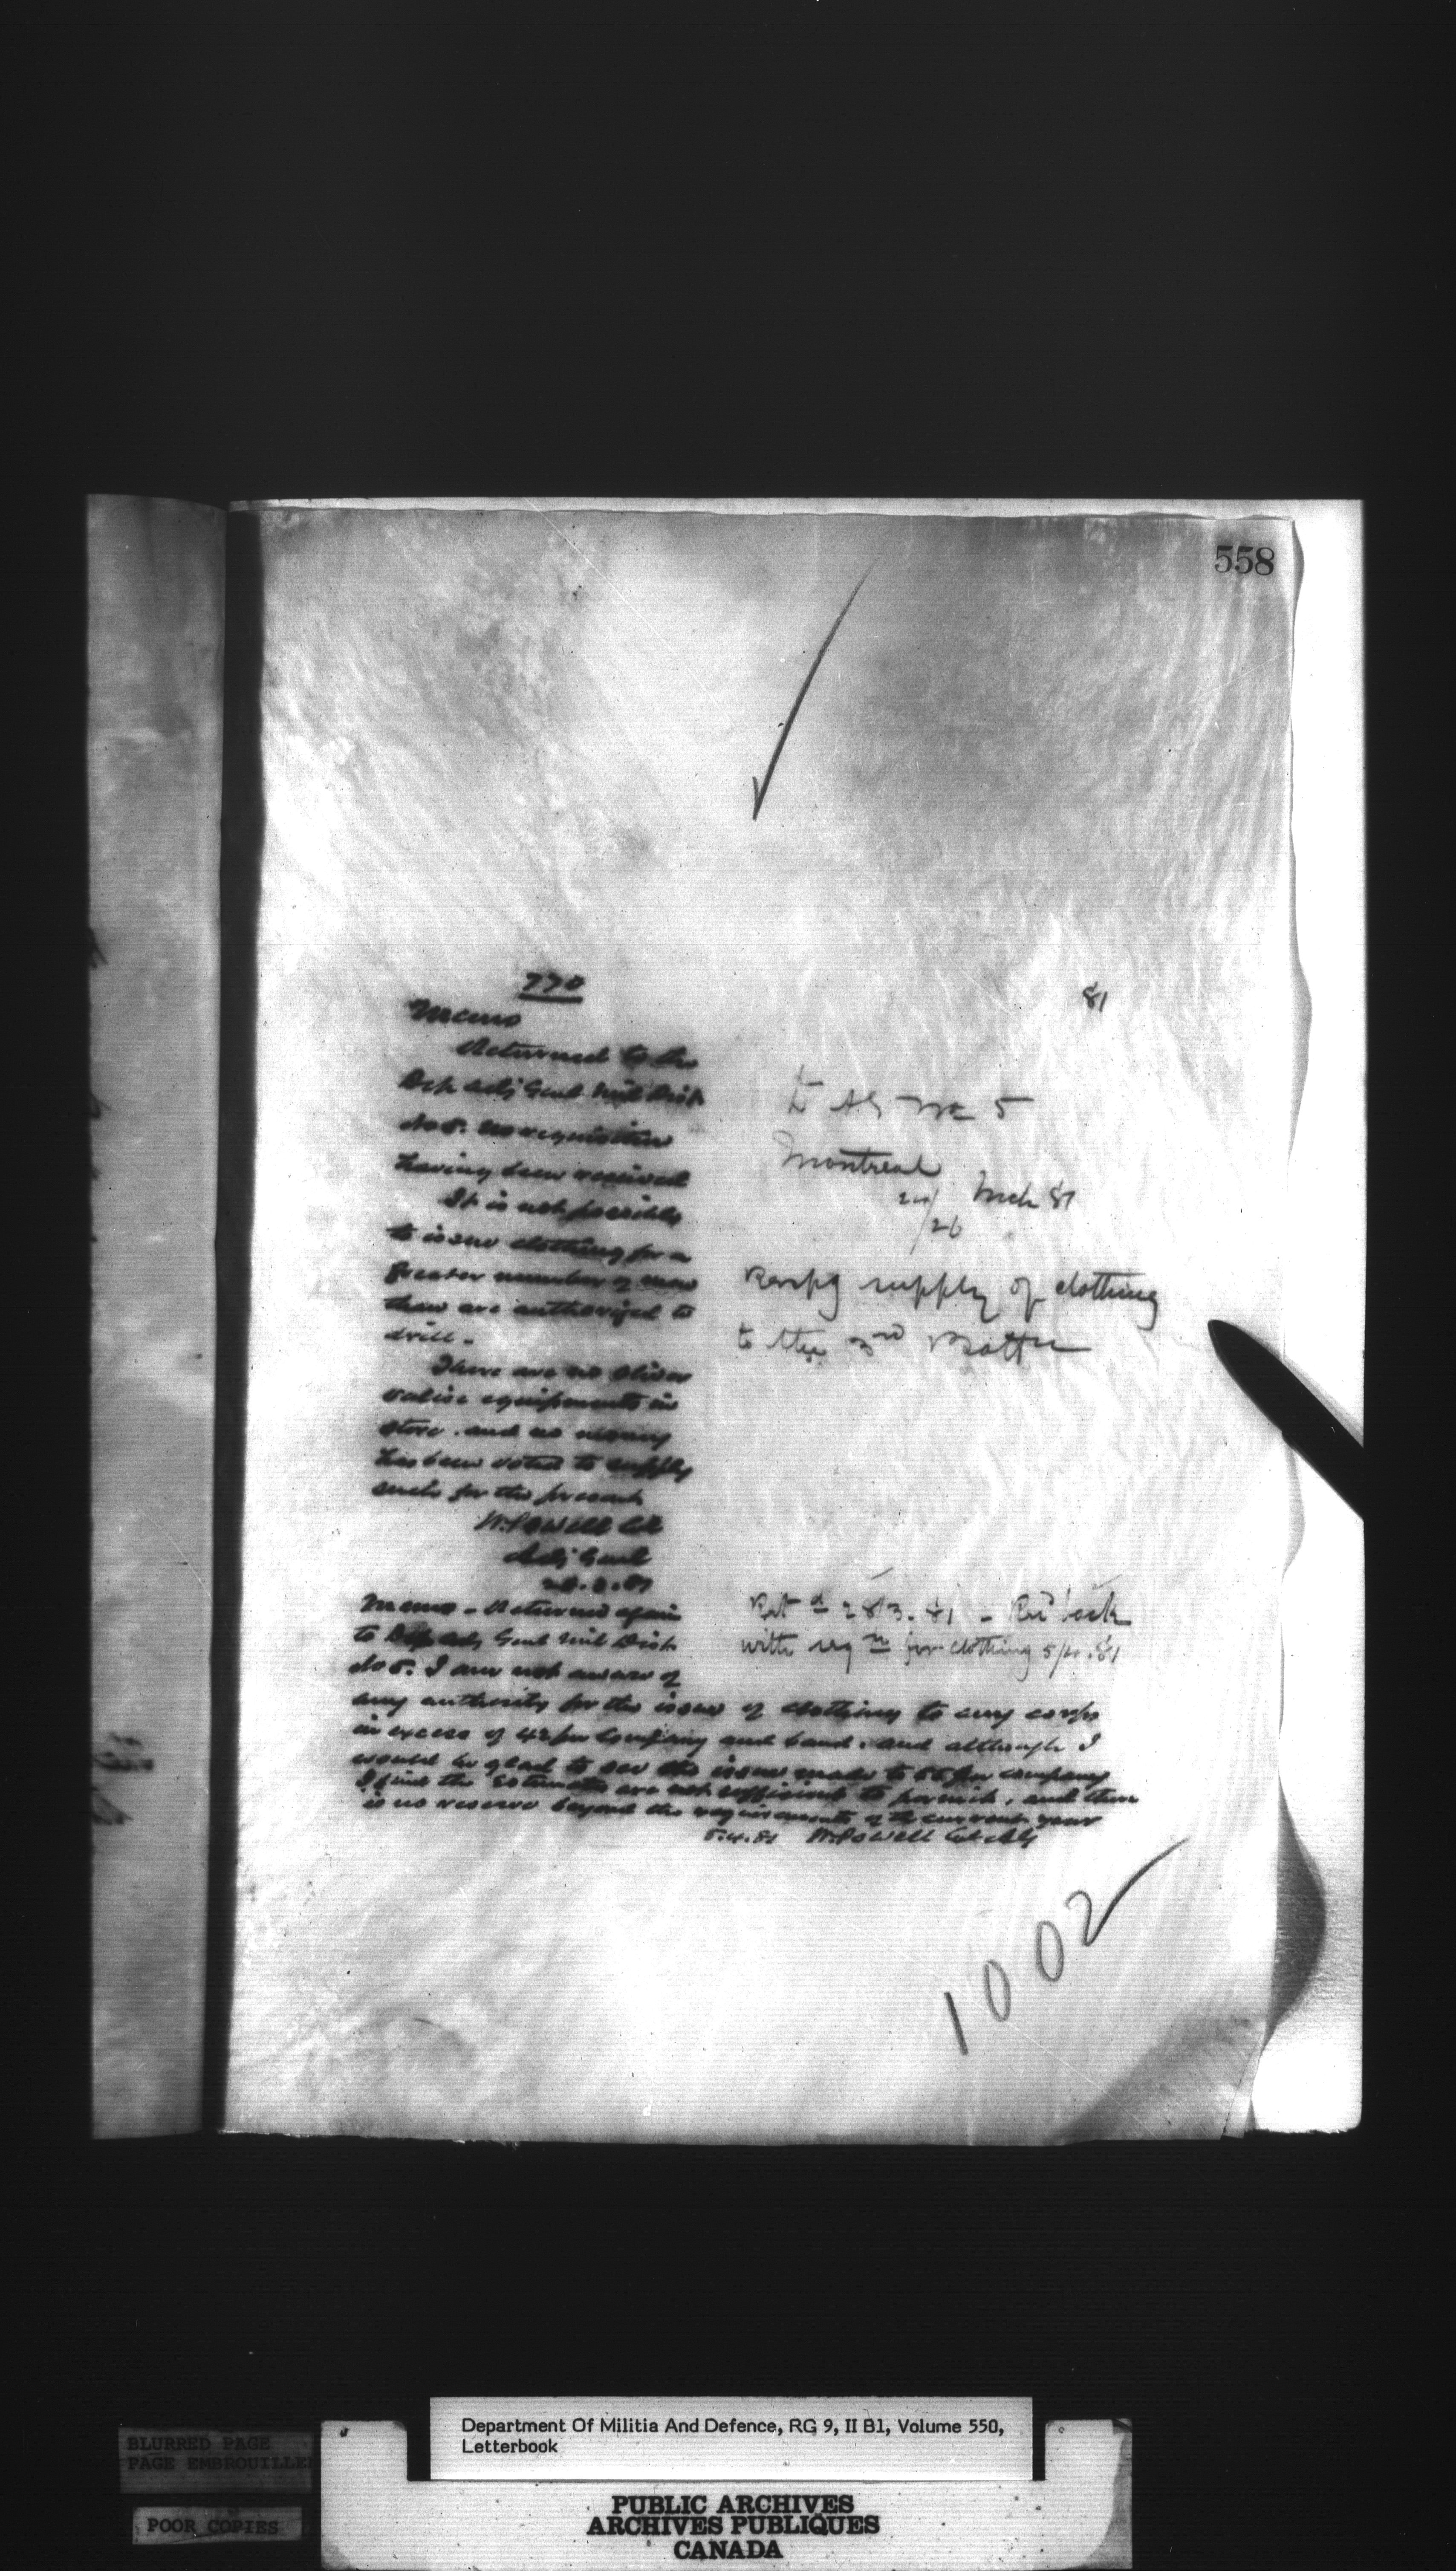 558
770
Memo
Returned to the
Dep Adj Genl Mil Dist
No 5. No requisition
having been received
It is not possible
to issue clothing for a
greater number of men
than are authorized to
drill.
There are no Oliver
valise equipments in
store. and no money
has been voted to supply
such for the present
W. Powell Col
Adj Genl
28.3.81
81
D A G No 5
Montreal
24/26 Mch 81
Respg supply of clothing
to the 3rd Battn
Retd 28/3.81 - Recd back
with reqn for clothing 5/4.81
Memo - Returned again
to Dep Adj Genl Mil Dist
No 5. I am not aware of
any authority for the issue of clothing to any corps
in excess of 42 per Company and band. and although I
would be glad to see the issue made to 55 per company
I find the Estimates are not sufficient to permit, and there
is no reserve beyond the requirements of the current year
5.4.81 W. Powell Col AG
1002
Department Of Militia And Defence, RG 9, II B1, Volume 550,
Letterbook
BLURRED PAGE
PAGE EMBROUILLEE
POOR COPIES
PUBLIC ARCHIVES
ARCHIVES PUBLIQUES
CANADA